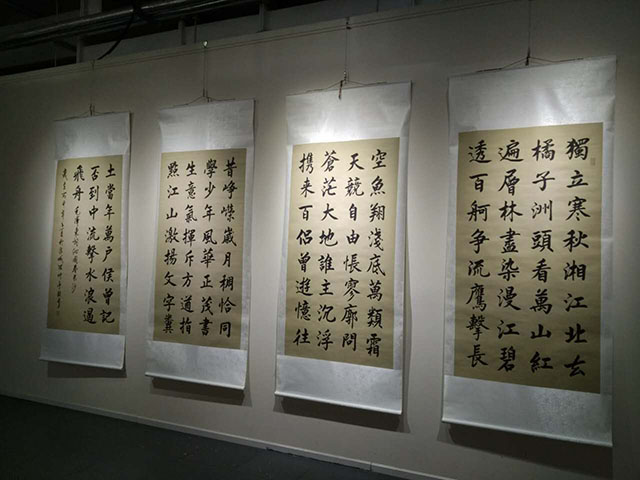 獨立寒秋湘江北去
橘子洲頭看萬山紅
遍層林盡染漫江碧
透百舸争流鷹擊長
空魚翔淺底萬類霜
天競自由悵寥廓問
蒼茫大地誰主沉浮
携来百侣曾遊憶往
昔峥嶸歲月稠恰同
學少年風華正茂書
生意氣揮斥方遒指
點江山激揚文字糞
土當年萬户侯曾記
否到中流擊水浪遏
飛舟 毛澤東詞沁園春長沙